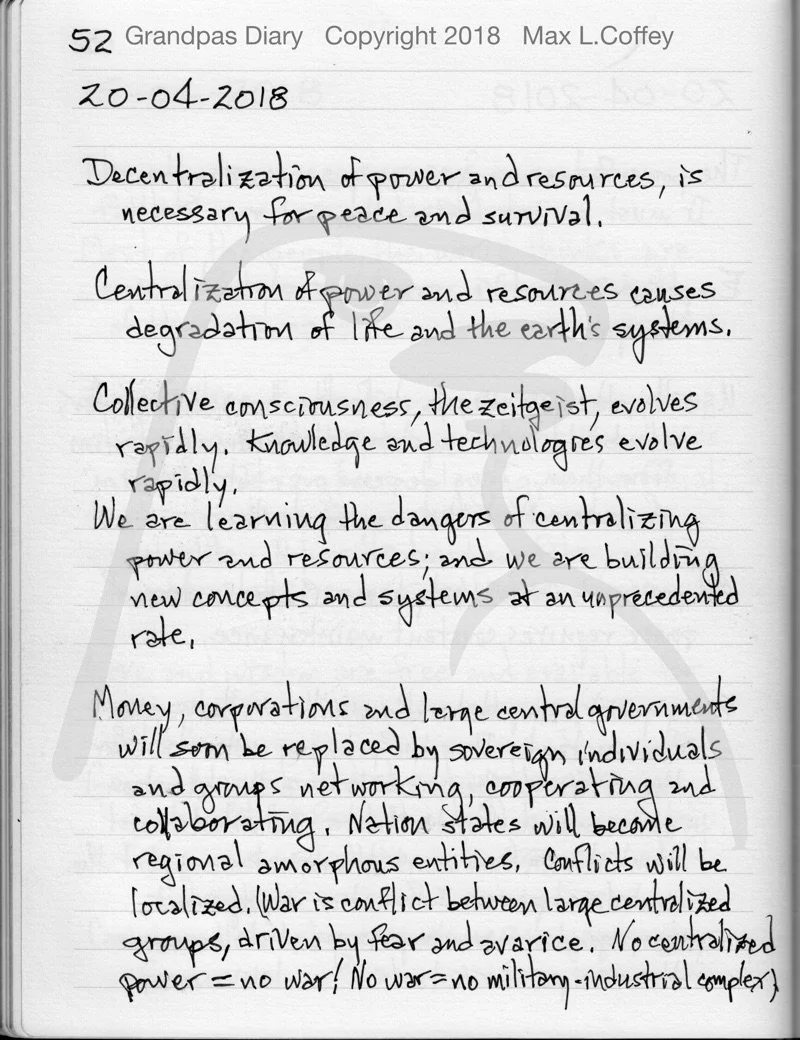 52 Grandpas Diary Copyright 2018 Max L.Coffey
20-04-2018
Decentralization of power and resources, is
necessary for peace and survival.
Centralization of power and resources causes
degradation of life and the earth's systems.
Collective consciousness, the zeitgeist, evolves
rapidly. Knowledge and technologies evolve
rapidly.
We are learning the dangers of centralizing
power and resources; and we are building
new concepts and systems at an unprecedented
rate.
Money, corporations and large central governments
will soon be replaced by sovereign individuals
and groups networking, cooperating and
collaborating. Nation states will become
regional amorphous entities. Conflicts will be
localized. (War is conflict between large centralized
groups, driven by fear and avarice. No centralized
power = no war! No war = no military-industrial complex)